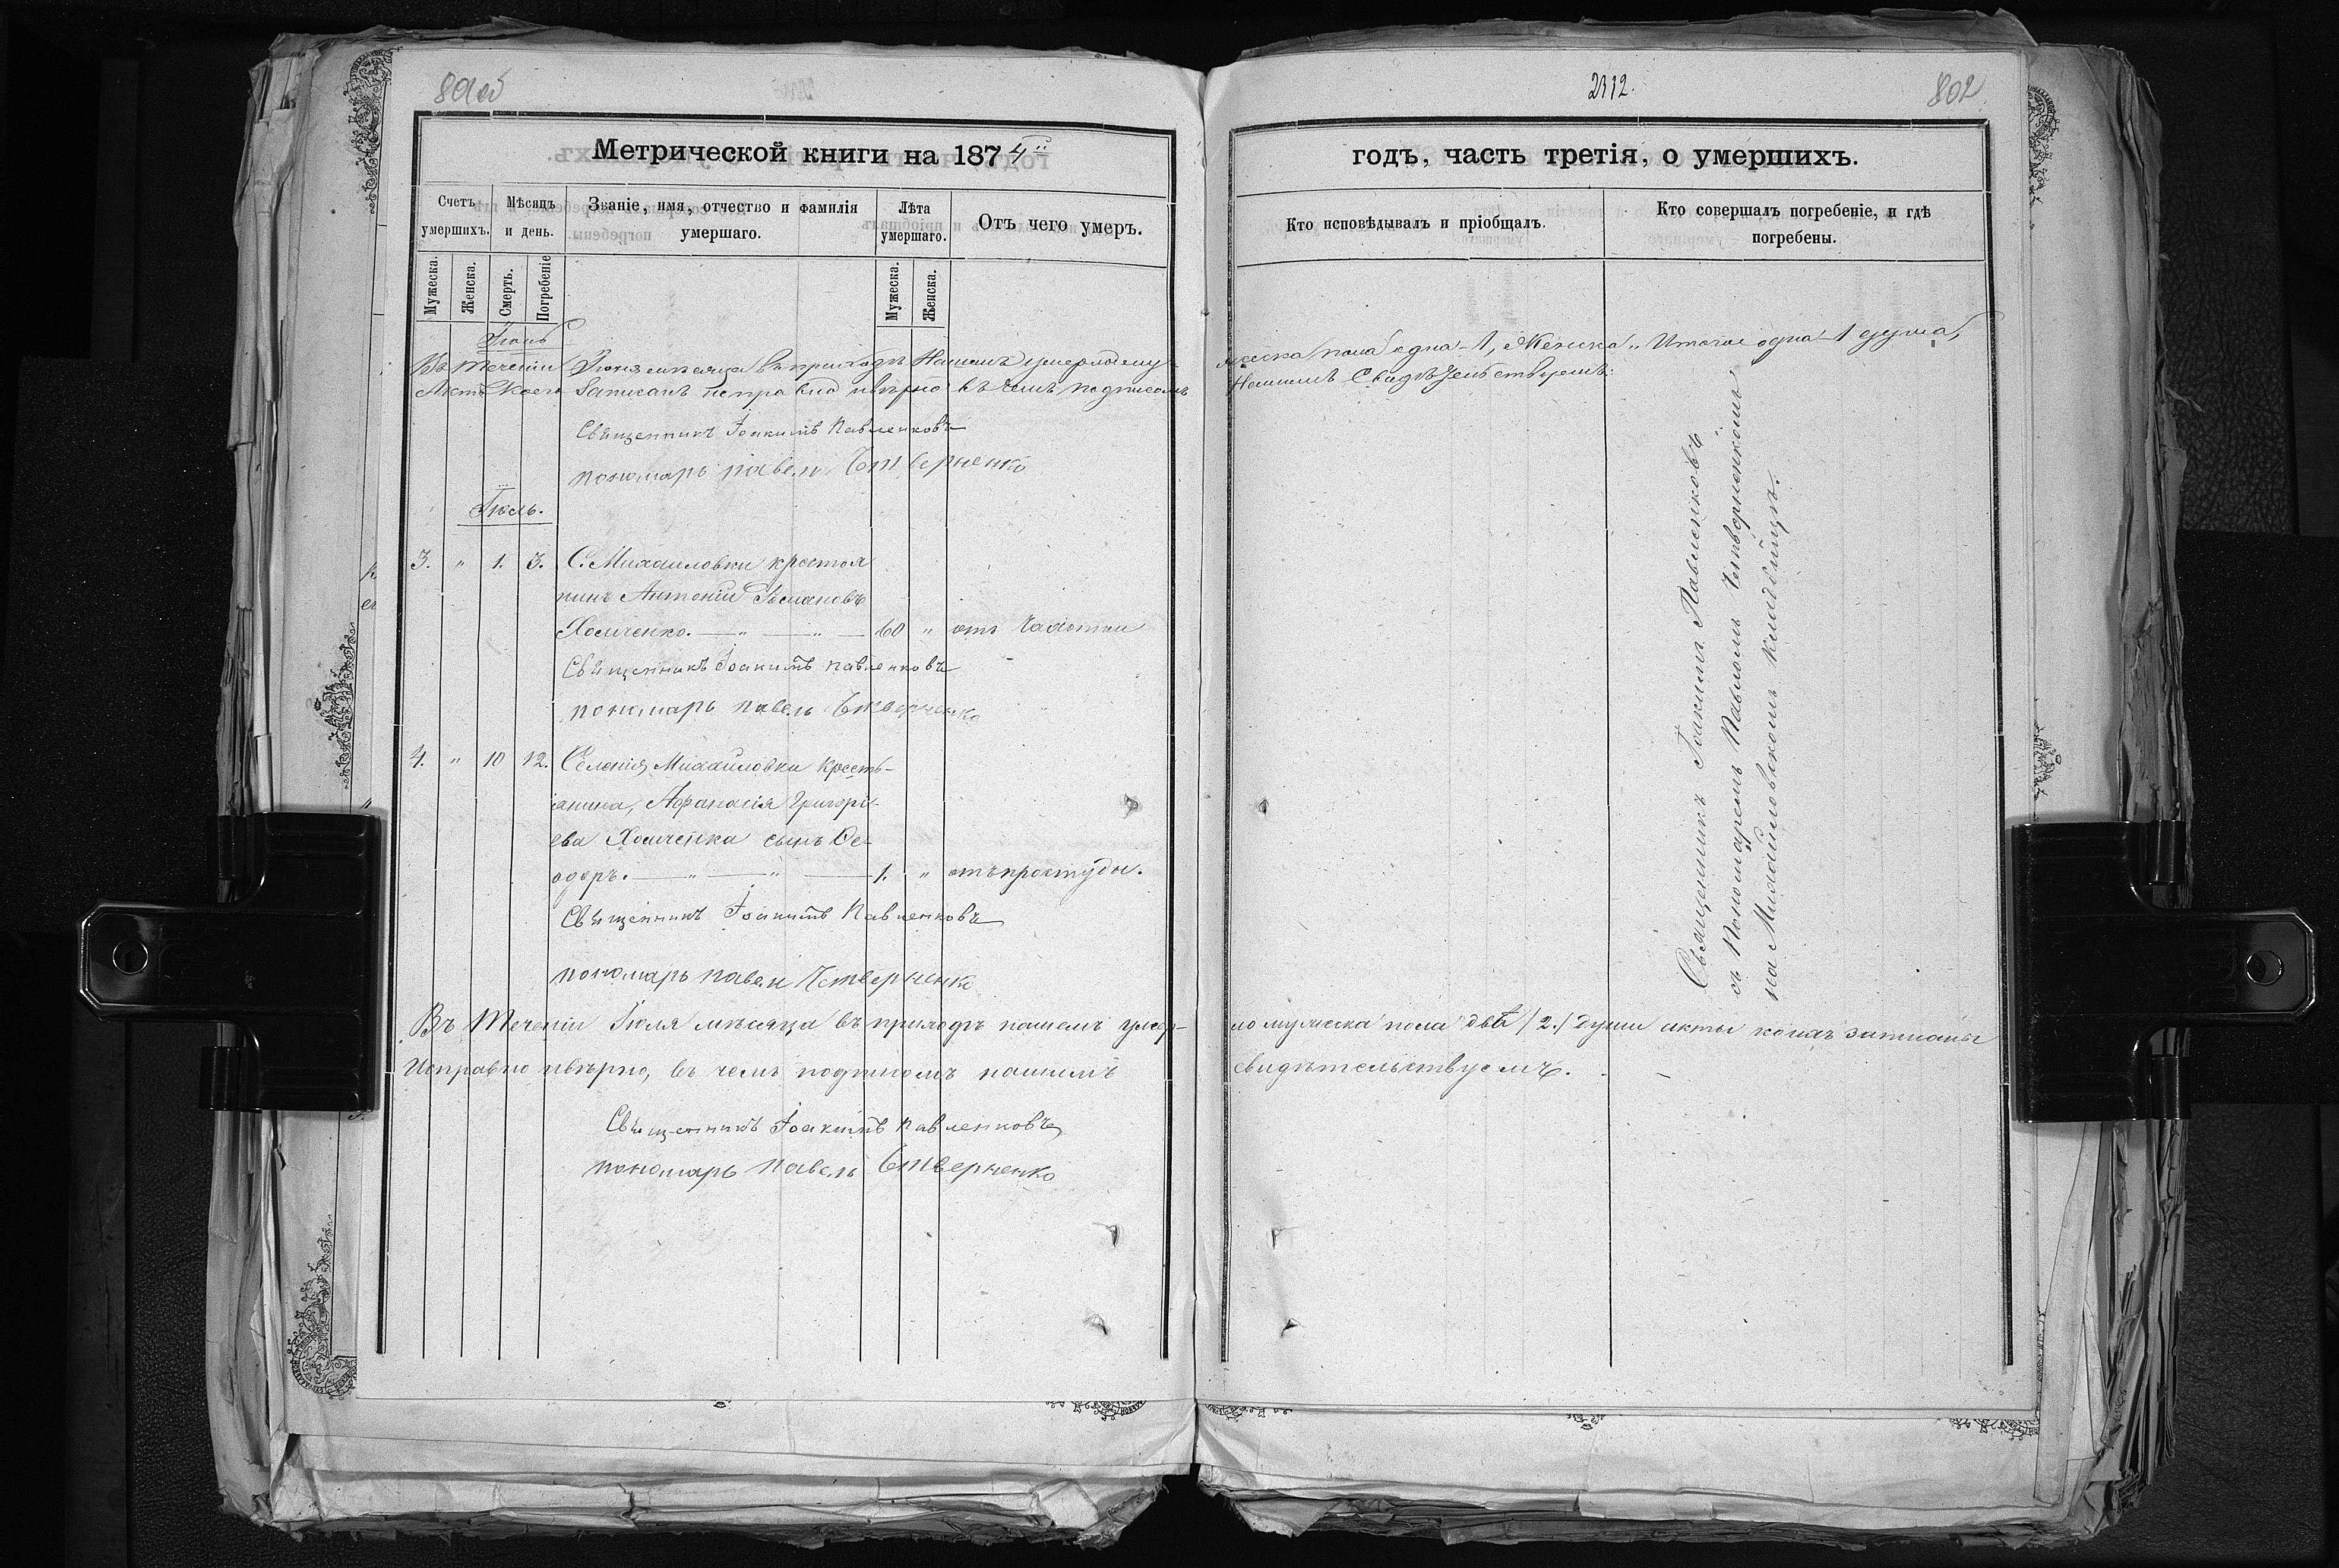 801об
2312.
802
Метрической книги на 1874й
годъ, часть третія, о умершихъ.
Счетъ умершихъ.
Мѣсяцъ и день.
Званіе, имя, отчество и фамилія умершаго.
Лѣта умершаго.
Отъ чего умеръ.
Кто исповѣдывалъ и пріобщалъ.
Кто совершалъ погребеніе, и гдѣ погребены.
Мужеска.
Женска.
Смерть.
Погребеніе
Мужеска.
Женска.
Іюнь
Въ теченіи Іюня мѣсяца въ приходѣ Нашемъ умерло
мужеска пола одна 1, Женска „ Итого одна 1 душа,
записанъ исправно и вѣрно въ чемъ подписомъ
Нашимъ Свидѣтельствуемъ.
Священникъ Іоакимъ Павленковъ
пономарь павелъ Четверненко
Іюль.
3. „ 1. 3. С. Михаиловки крестоя
нинъ Антоній
Хомченко. — „ — „ — 60 „ отъ Чахотки
Священникъ Іоакимъ Павленковъ
пономарь павелъ Четверненко
4. „ 10 12. Селенія Михайловки кресть-
янина, Афанасія Григорі-
ева Хомченка сынъ Ѳе-
одоръ. — „ — „ — 1. „ отъ простуды.
Священникъ Іоакимъ Павленковъ
пономарь павелъ Четверненко
Священникъ Іоакимъ Павленковъ
съ Пономаремъ Павломъ Четверненкомъ
на Михайловскомъ кладбищѣ.
Въ теченіи Іюля мѣсяца въ приходѣ нашемъ умер-
ло мужеска пола двѣ /2./ души акты коихъ записаны
Исправно и вѣрно, въ чемъ подписомъ нашимъ
свидѣтельствуемъ.
Священникъ Іоакимъ Павленковъ
пономарь павелъ Четверненко